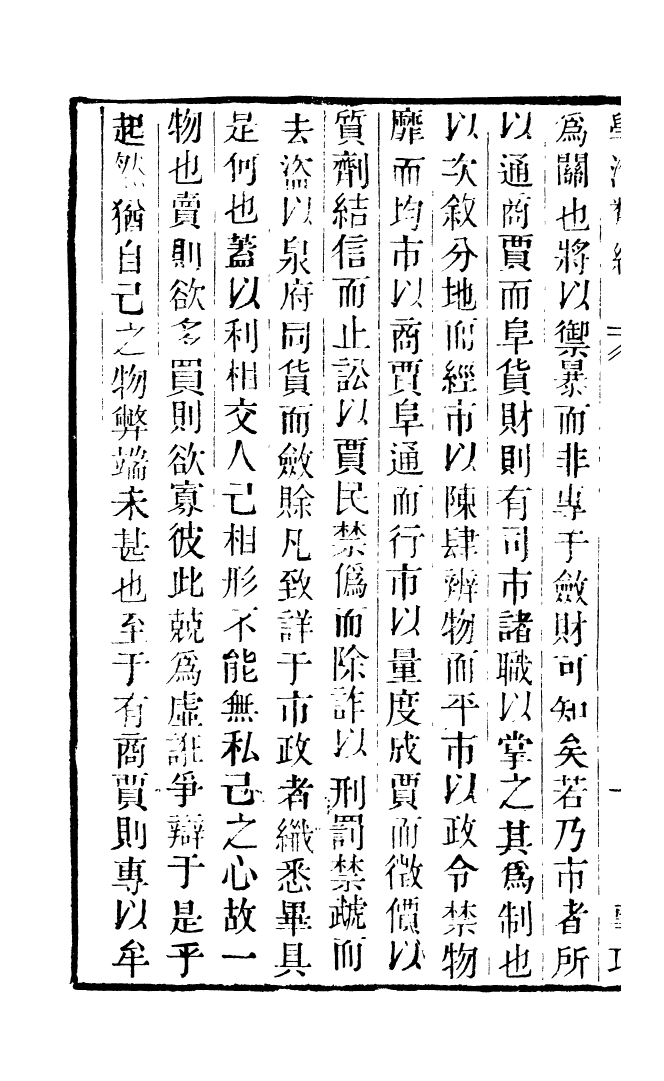 爲關也將以禦暴而非專于斂財可知矣若乃市者所
以通商賈而阜貨財則有司市諸職以掌之其爲制也
以次敘分地而經市以陳肆辨物而平市以政令禁物
靡而均市以商賈阜通而行市以量度成賈而徵價以
質劑結信而止訟以賈民禁僞而除詐以刑罰禁虣而
去盜以泉府同貨而斂賖凡致詳于市政者纖悉畢具
是何也蓋以利相交人己相形不能無私己之心故一
物也賣則欲多買則欲寡彼此兢爲虛誑爭辯于是乎
起然猶自己之物弊端未甚也至于有商賈則專以牟